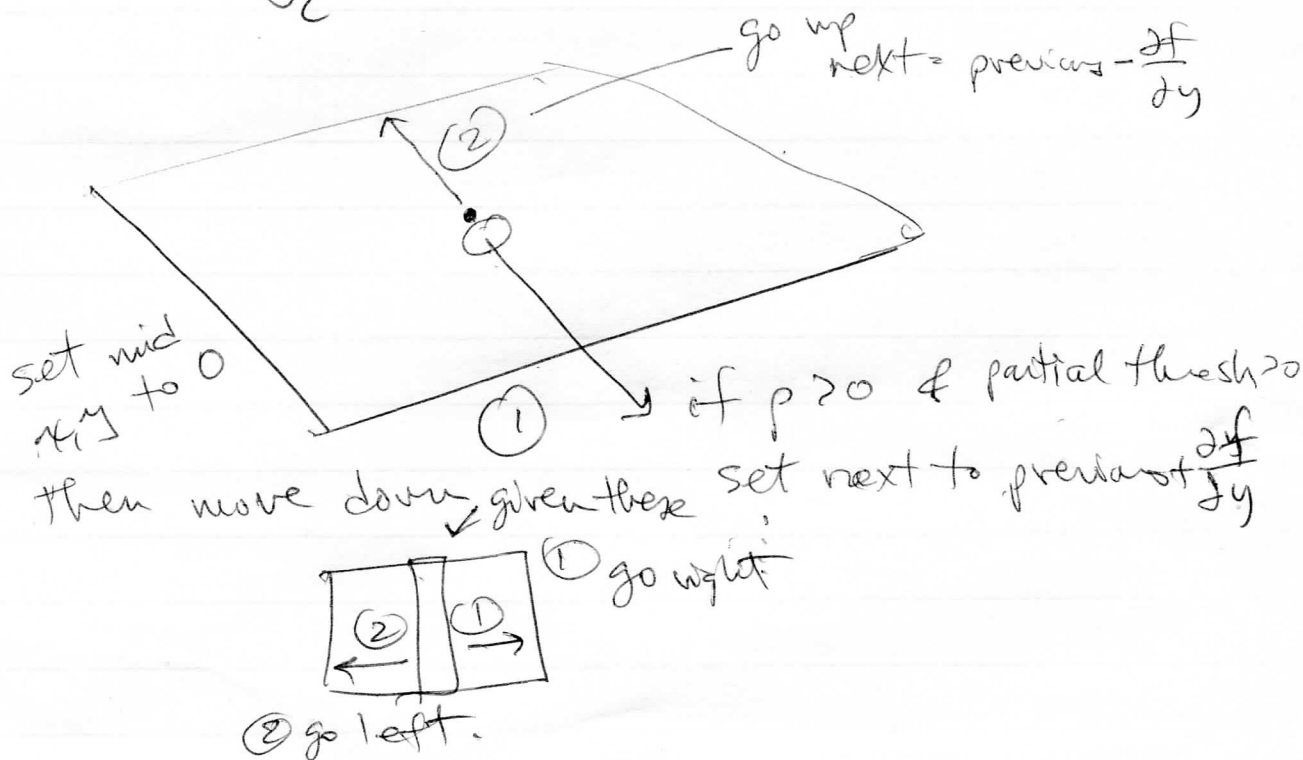 go up
next = previous - ∂f/∂y
②
set mid
x,y to 0
① if p>0 & partial thresh>0
then move down, given these set next to previous + ∂f/∂y
① go right
② ①
② go left.